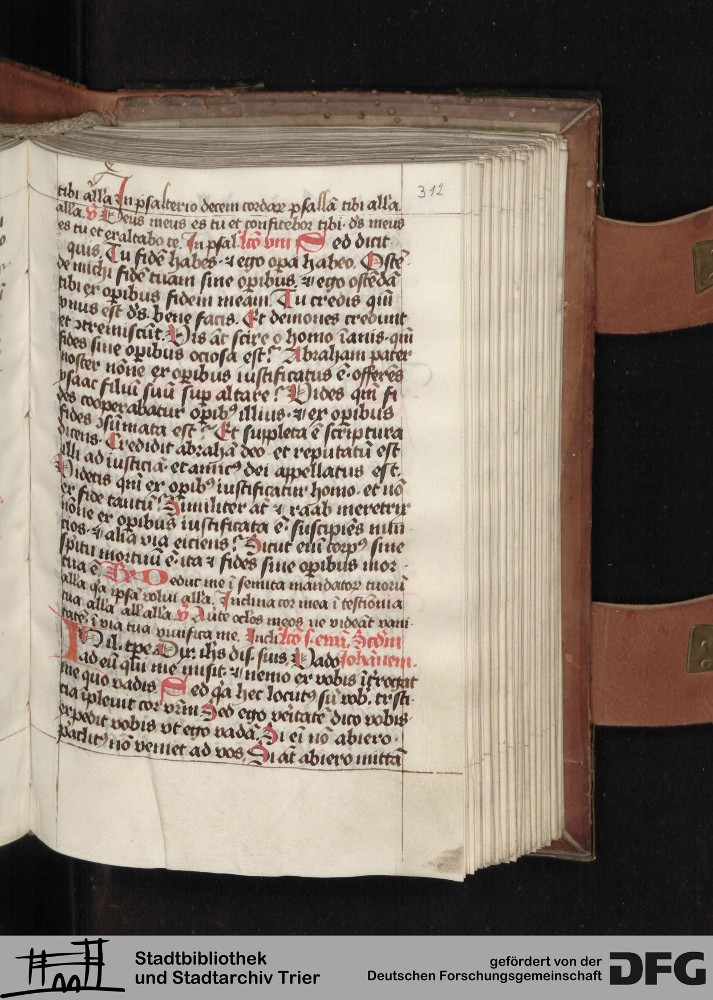 312
tibi all'a In psalterio decem cordaꝝ psallā tibi all'a
all'a. V Deus meus es tu et confitebor tibi· ds̄ meus
es tu et exaltabo te. In psal. lc̄o viii Sed dicit
quis. Tu fidē habes· ⁊ ego opa habeo. Oste-
de michi fidē tuam sine opibus. ⁊ ego ostēdā
tibi ex opibus fidem meam. Tu credis qm̄
vnus est ds̄. bene facis. Et demones credunt
et ↄtremiscūt. Vis āt scire o homo īanis· qm̄
fides sine opibus ociosa est? Abraham pater
noster nōne ex opibus iustificatus ē· offerēs
ysaac filiū suū sup altare? Vides qm̄ fi
des cooperabatur opibꝰ illius· ⁊ ex opibus
fides ↄsūmata est? Et suppleta ē scriptura
dicens. Credidit abrahā deo· et reputatū est
illi ad iusticiā· et amicꝰ dei appellatus est.
Videtis qm̄ ex opibꝰ iustificatur homo· et nō
ex fide tantū? Similiter āt ⁊ raab meretrix
nōne ex opibus iustificata ē· suscipiēs nūu
cios· ⁊ alia via eiciens? Sicut em̄ corpꝰ sine
spū mortuū ē· ita ⁊ fides sine opibus mor-
tua ē. Deduc me ī semita mandatoꝝ tuoꝝ
all'a q̄a ipsā volui all'a. Inclina cor meū ī testiōnia
tua all'a all'all'a. V Auīte oclos meos ne videāt vani-
tatē· ī via tua viuifica me. Incli lc̄o s. ewā. Scdm̄
In il. tpe. Dix. ihs dis. suis Vado Johannem.
ad eū qui me misit· ⁊ nemo ex vobis īt̄rogat
me quo vadis Sed q̄a hec locutꝰ sū vob. tristi-
cia īpleuit cor vr̄m Sed ego vēitatē dico vobis·
expedit vobis vt ego vadā. Si eī nō abiero·
paclitꝰ nō veniet ad vos. Si āt abiero mittā
Stadtbibliothek
und Stadtarchiv Trier
gefördert von der
Deutschen Forschungsgemeinschaft
DFG